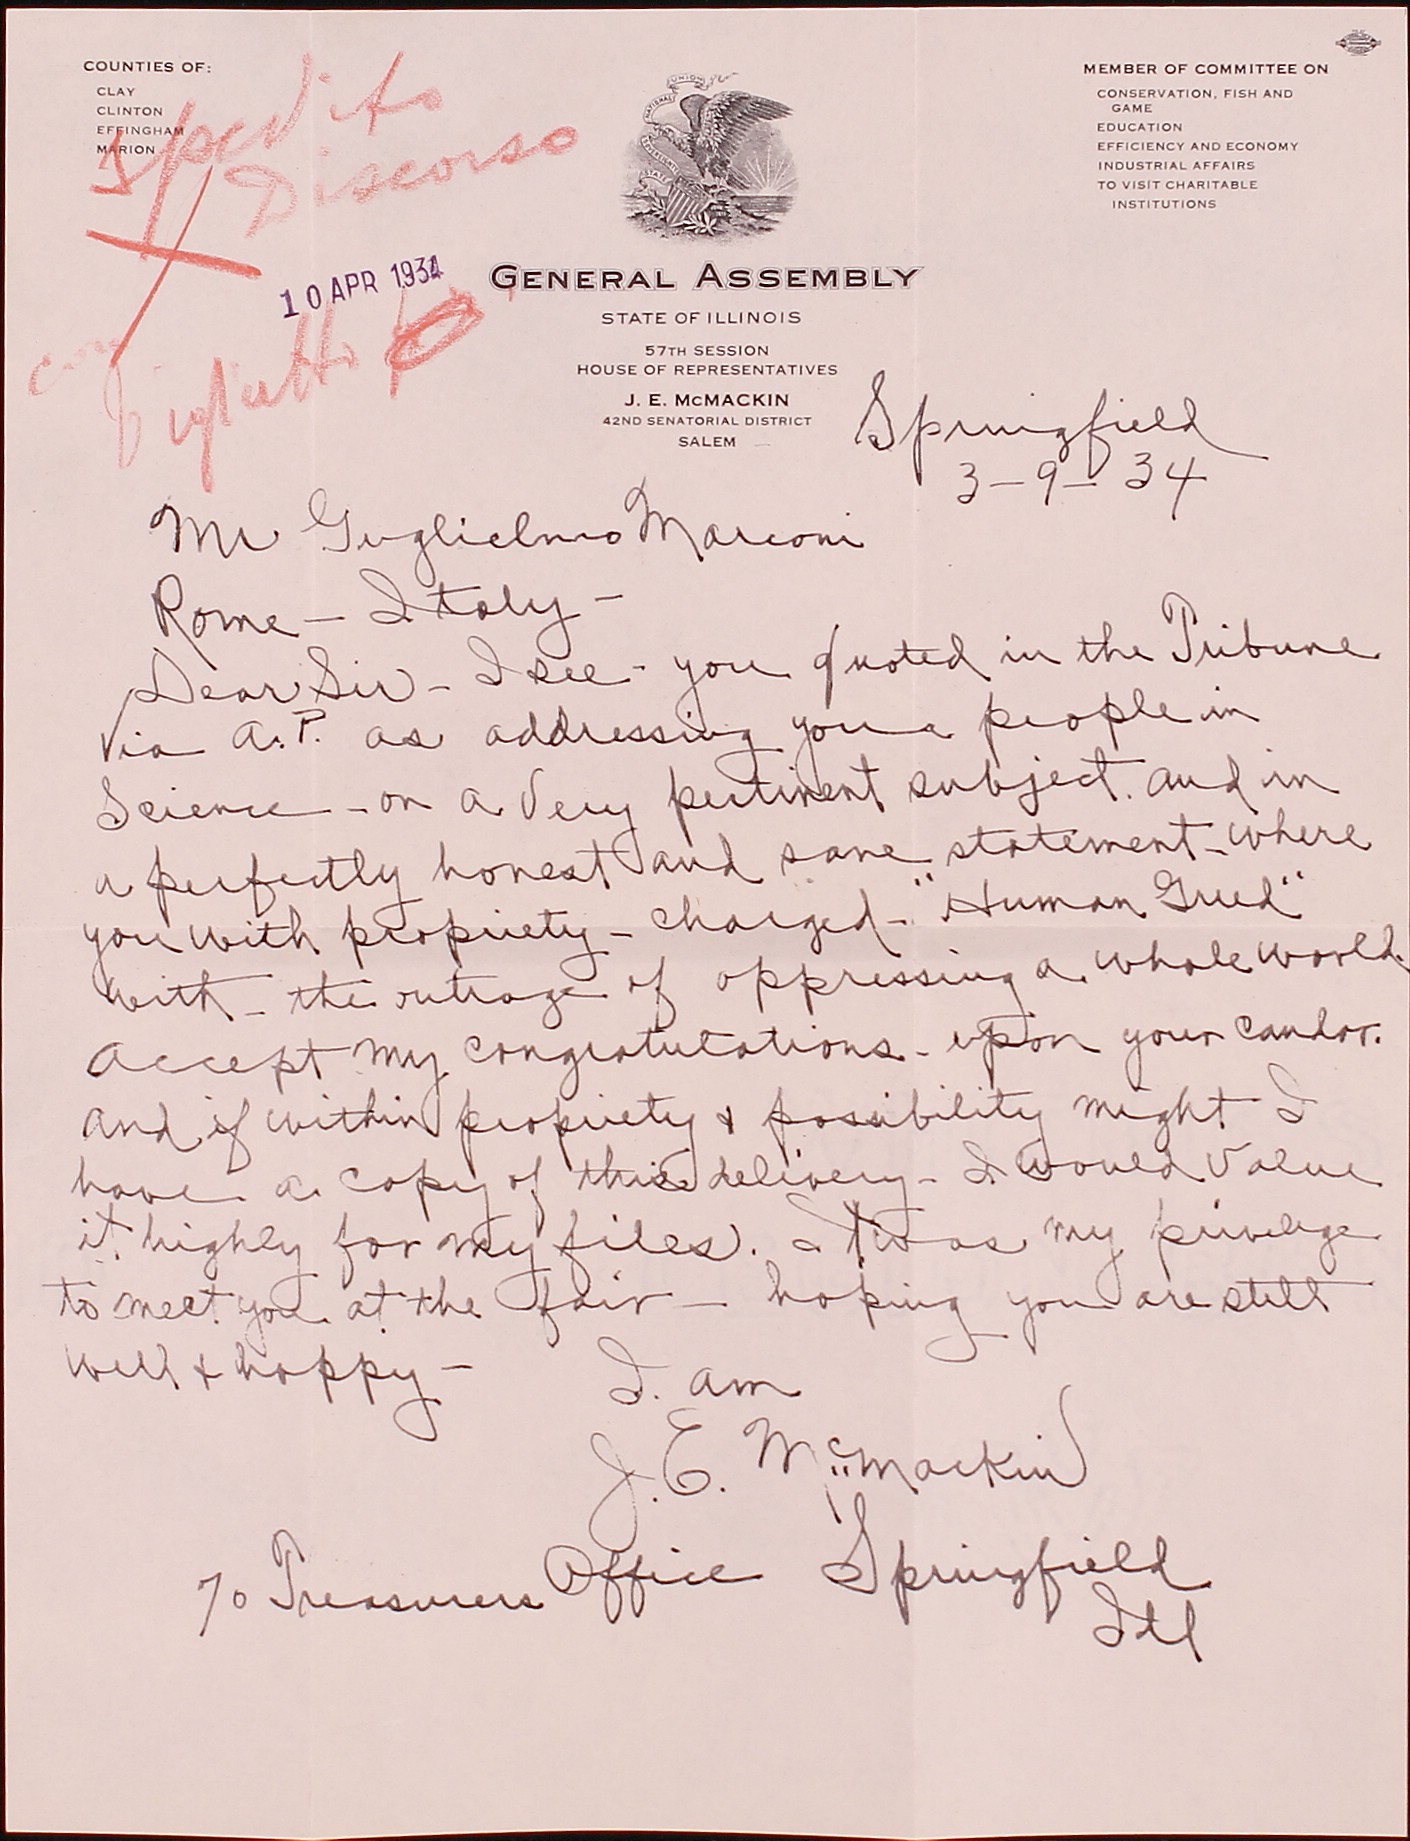 COUNTIES OF:
CLAY
CLINTON
EFFINGHAM
MARION
Spedito
Discorso
10 APR 1934
con
biglietto
NATIONAL UNION
STATE
GENERAL ASSEMBLY
STATE OF ILLINOIS
57TH SESSION
HOUSE OF REPRESENTATIVES
J. E. McMACKIN
42ND SENATORIAL DISTRICT
SALEM
MEMBER OF COMMITTEE ON
CONSERVATION, FISH AND
GAME
EDUCATION
EFFICIENCY AND ECONOMY
INDUSTRIAL AFFAIRS
TO VISIT CHARITABLE
INSTITUTIONS
Springfield
3-9-34
Mr Guglielmo Marconi
Rome - Italy -
Dear Sir - I see - you quoted in the Tribune
via A.P. as addressing your people in
Science - on a very pertinent subject. and in
a perfectly honest and sane statement - where
you with propriety - charged - "Human Greed"
with - the outrage of oppressing a whole world.
Accept my congratulations - upon your candor.
and if within propriety & possibility might I
have a copy of this delivery - I would value
it highly for my files. It was my privelige
to meet you at the fair - hoping you are still
well & happy -
I am
J. E. McMackin
% Treasurers Office Springfield
Ill